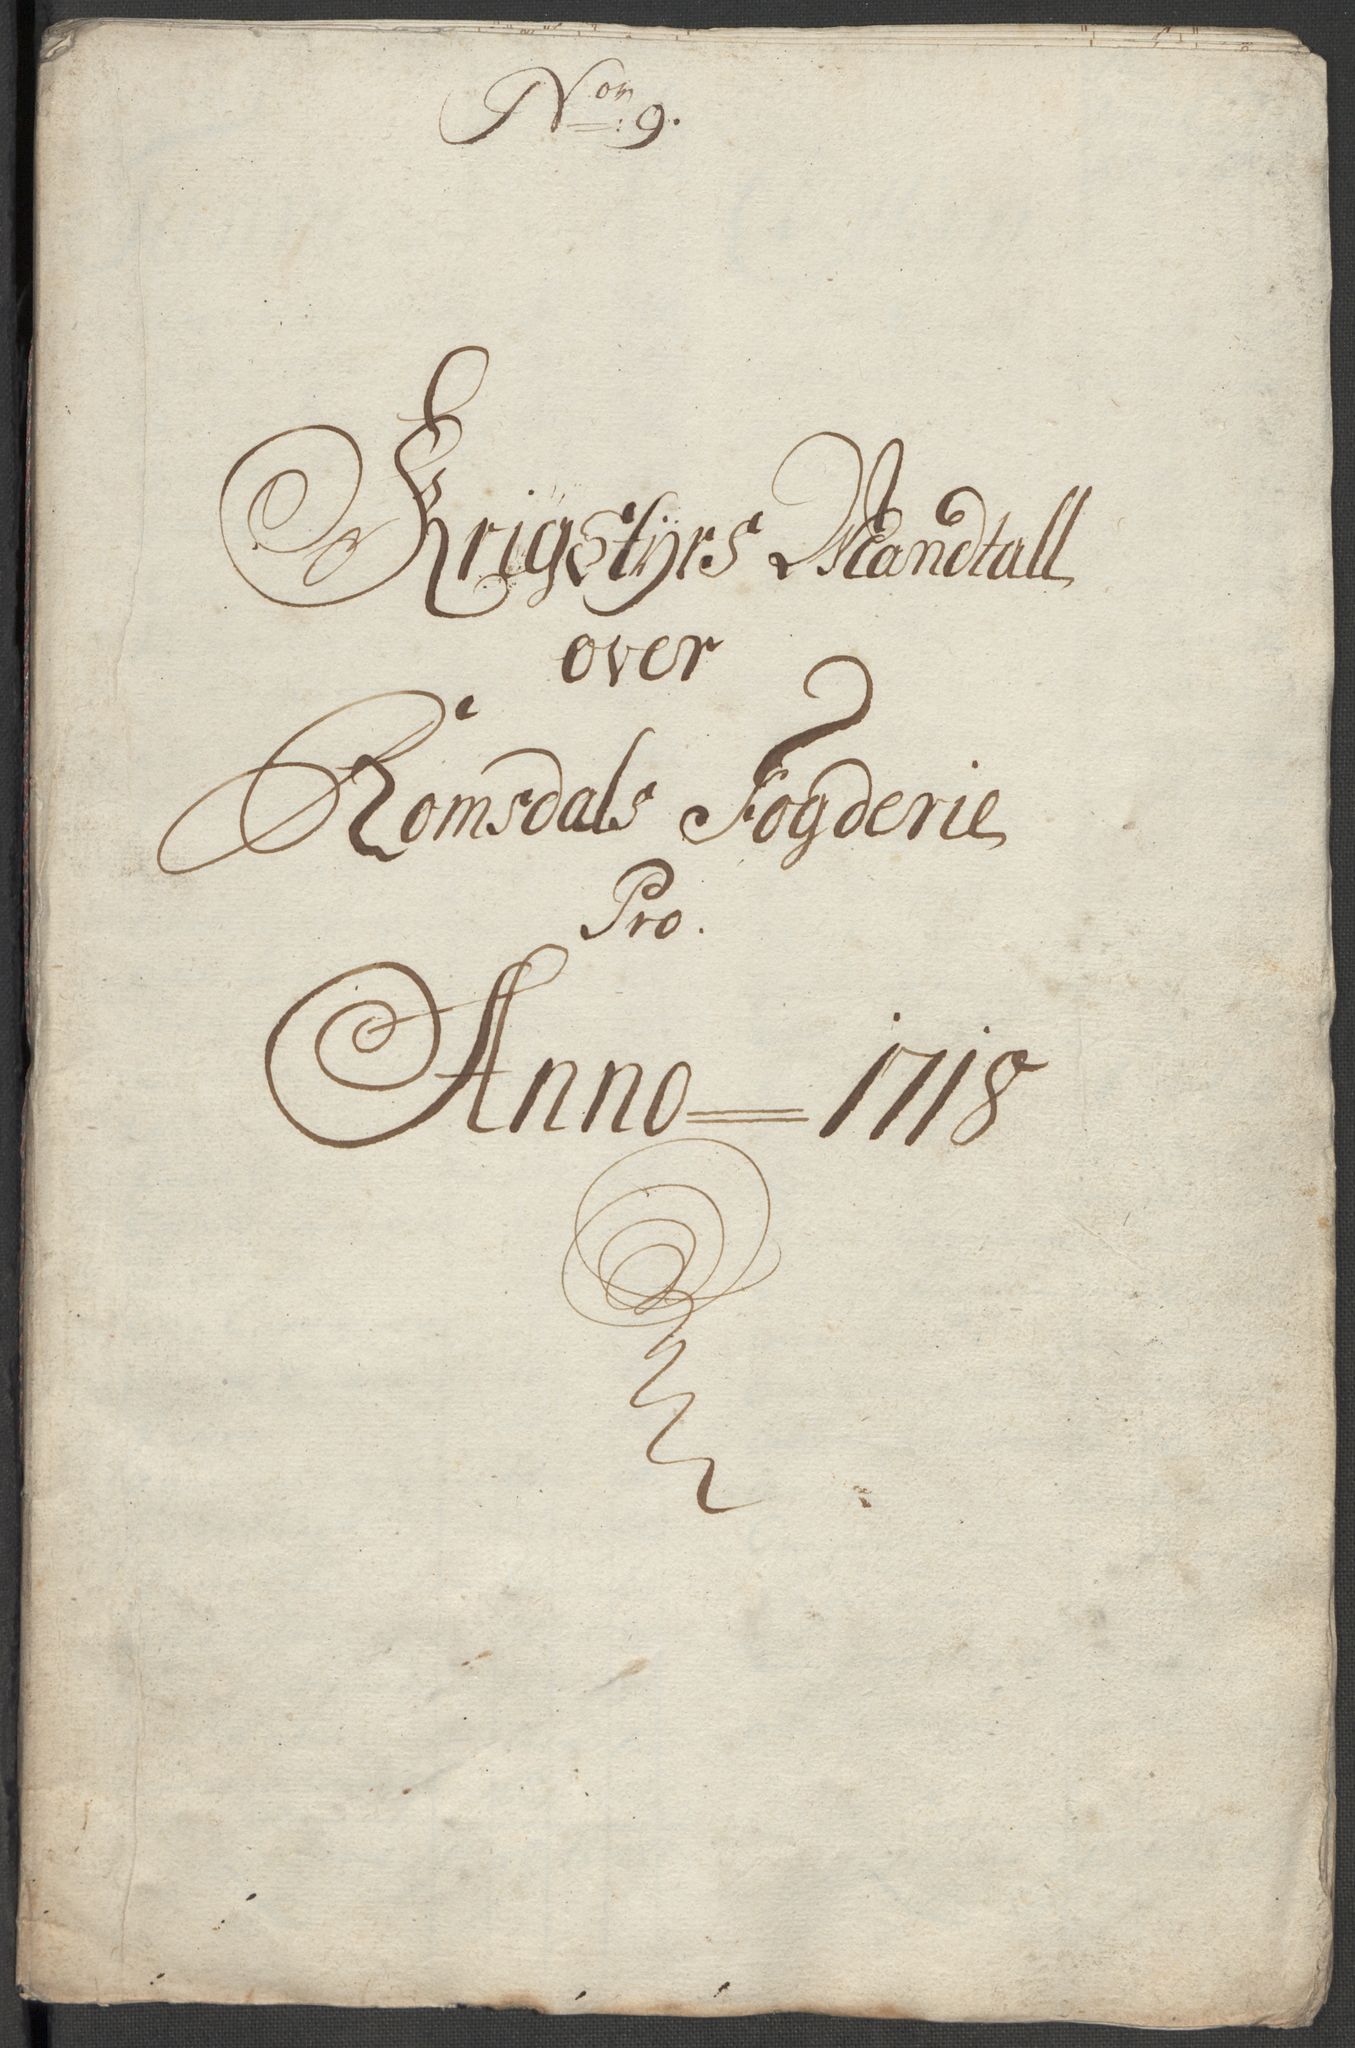 Non: 9.
Krigstyrs Mandtall
over
Romsdals Fogderie
Pro.
Anno 1718